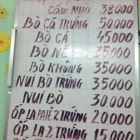 38000
BÒ CÁ TRỨNG 50000
BÒ CÁ 45000
BÒ NÉ 35000
BÒ KHÔNG 35000
NUI BÒ TRỨNG 35000
NUI BÒ 30000
ỐP LA PATÊ 2 TRỨNG 20000
ỐP LA 2 TRỨNG 15000